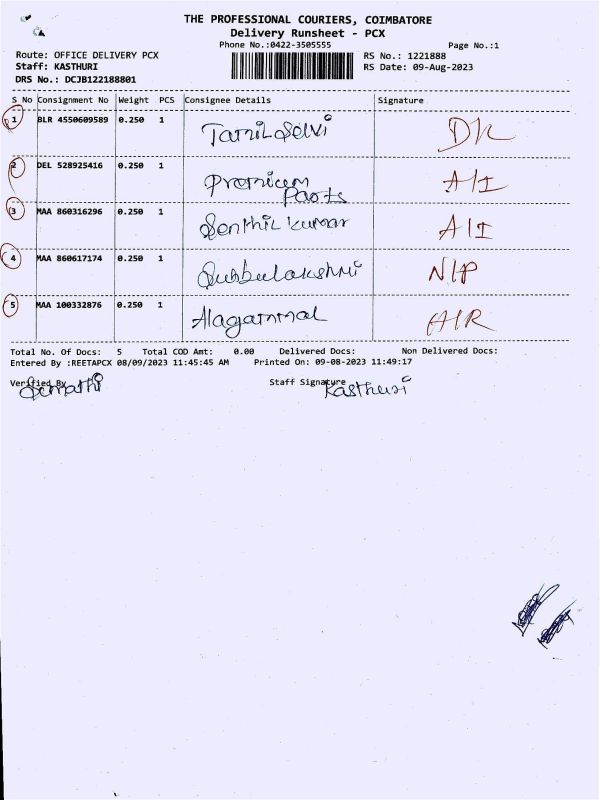 THE PROFESSIONAL COURIERS, COIMBATORE
Delivery Runsheet - PCX
Phone No.:0422-3505555 Page No.:1
Route: OFFICE DELIVERY PCX RS No.: 1221888
Staff: KASTHURI RS Date: 09-Aug-2023
DRS No.: DCJB122188801
S No Consignment No Weight PCS Consignee Details Signature
1 BLR 4550609589 0.250 1 Tamil Selvi DR
2 DEL 528925416 0.250 1 A/I
Parts
3 MAA 860316296 0.250 1 Senthil kumar A/I
4 MAA 860617174 0.250 1 Subbulakshmi N/P
5 MAA 100332876 0.250 1 Alagammal A/R
Total No. Of Docs: 5 Total COD Amt: 0.00 Delivered Docs: Non Delivered Docs:
Entered By :REETAPCX 08/09/2023 11:45:45 AM Printed On: 09-08-2023 11:49:17
Verified By Staff Signature Kasthuri